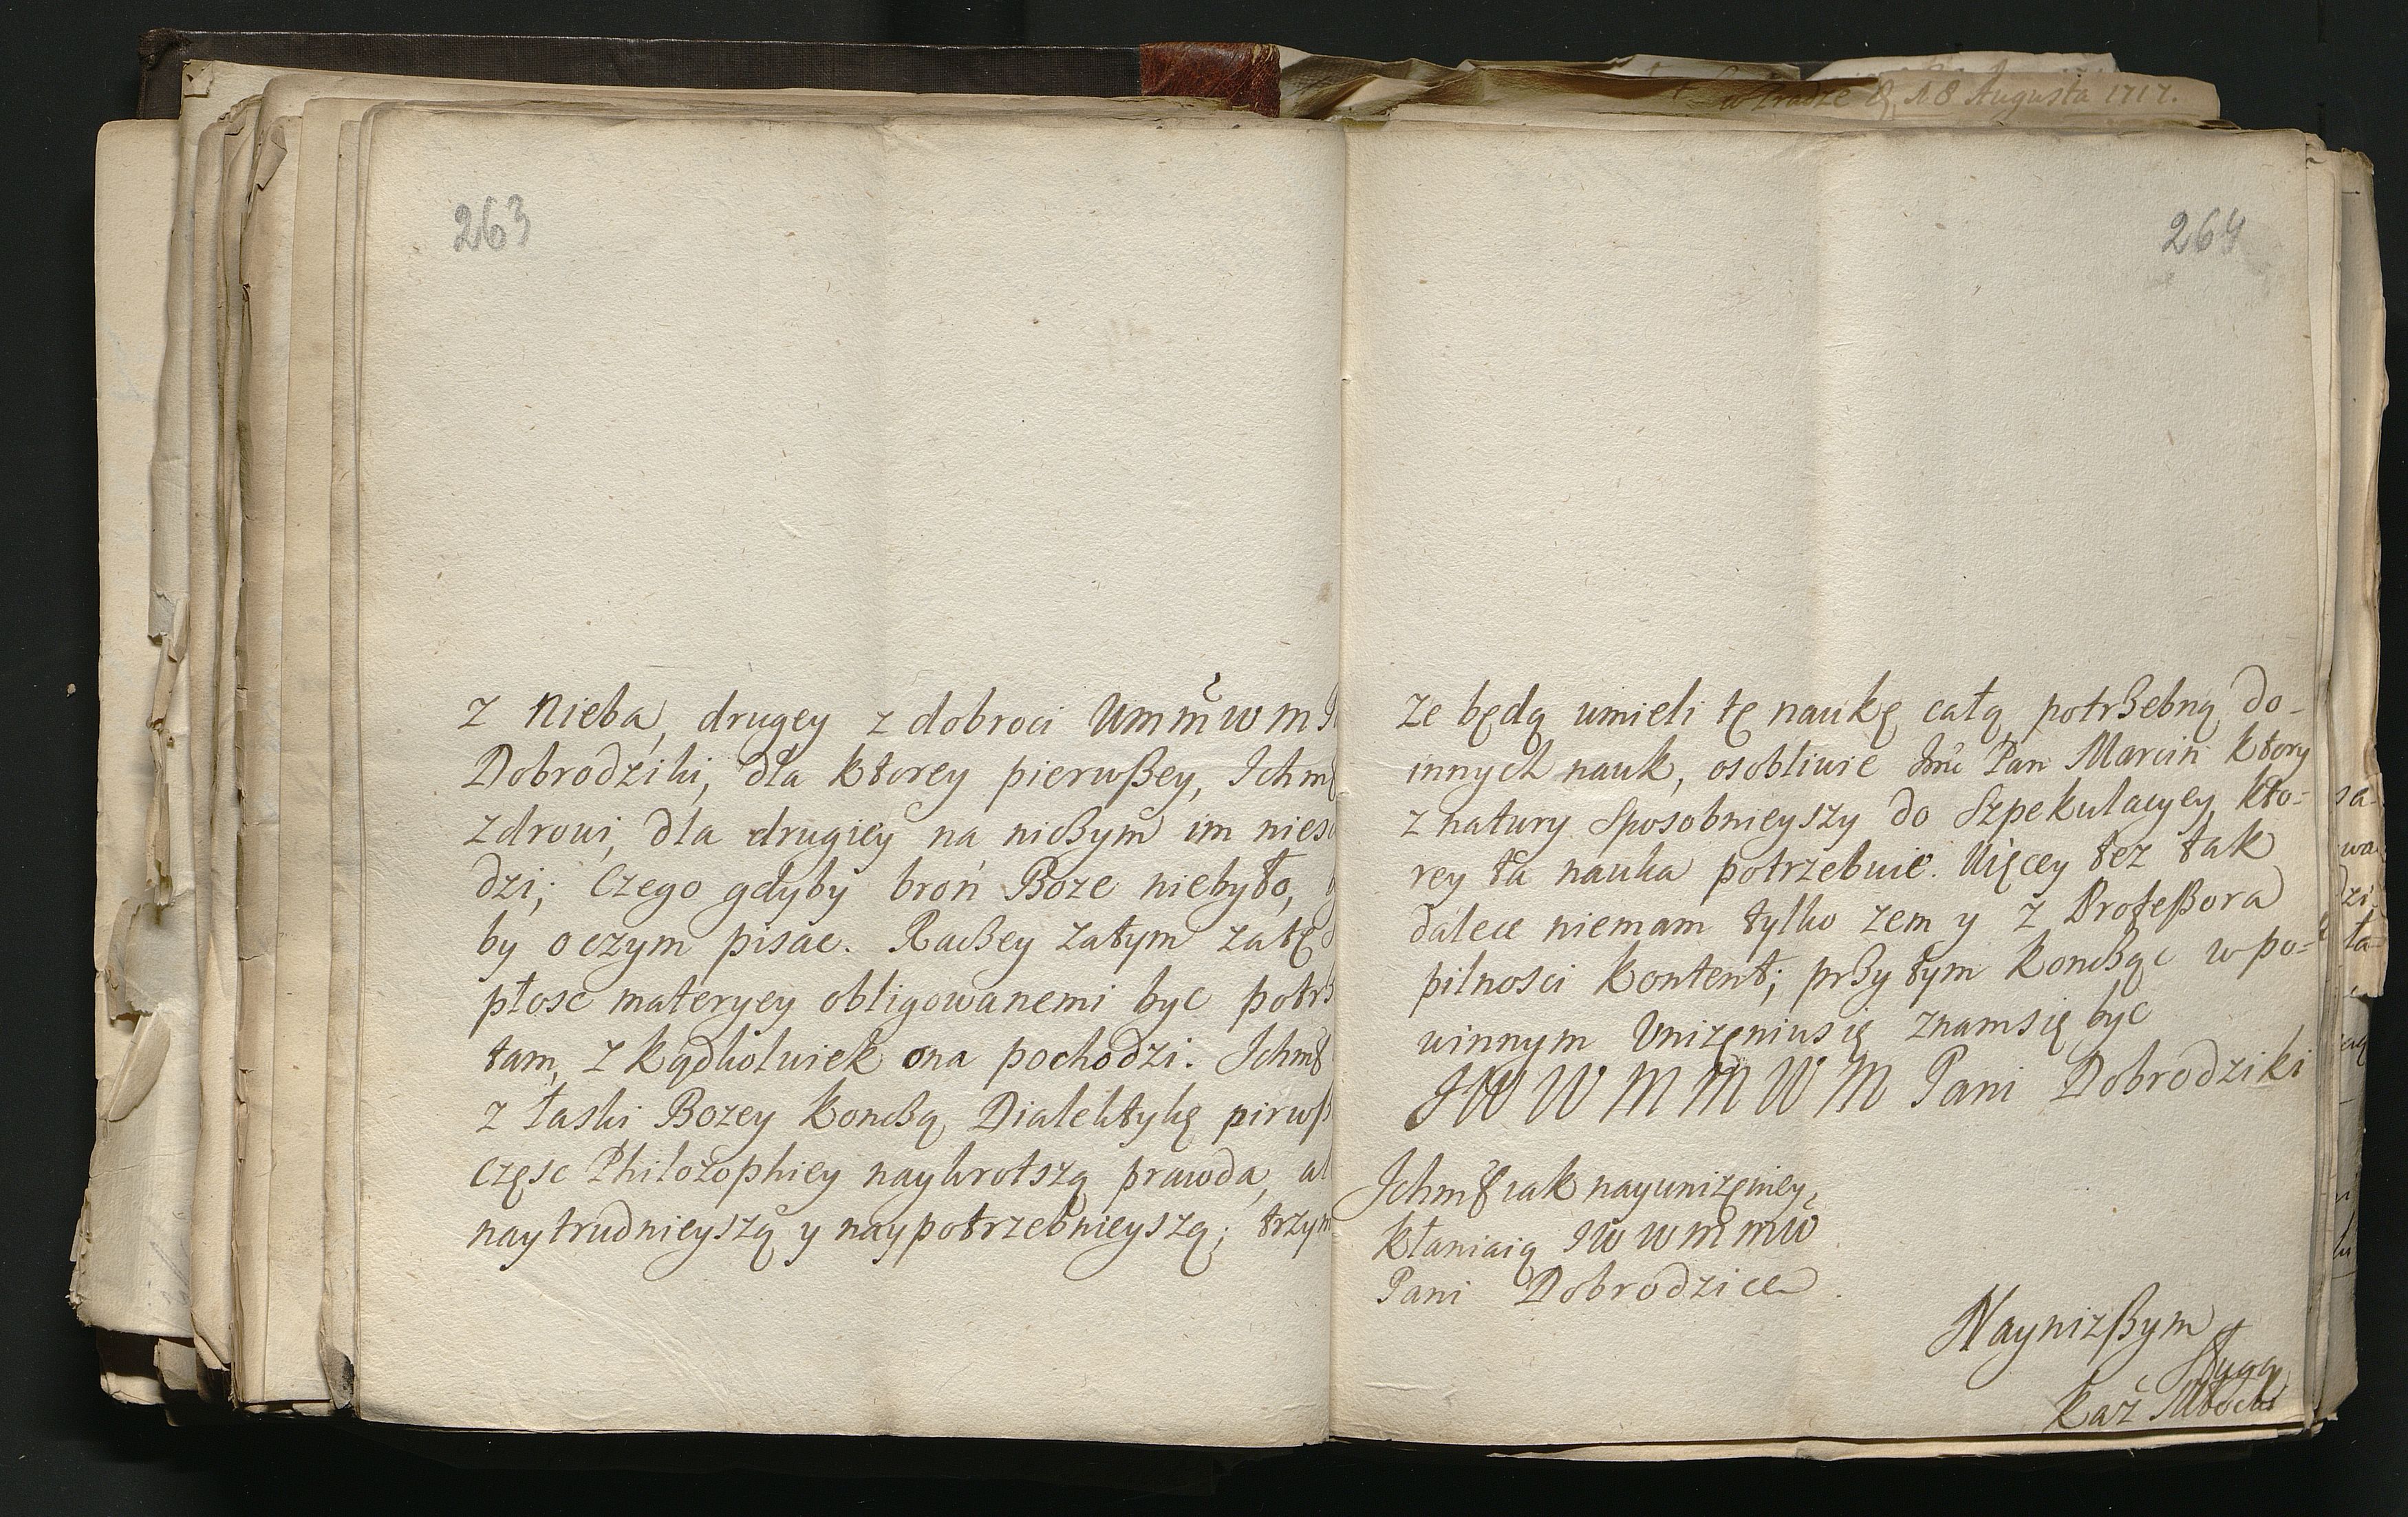 w Pradze D 18 Augusta 1717.
263
z Nieba, drugey z dobroci Wmm̃wm
Dobrodziki, dla ktorey pierwßey, Ichm
zdrowi, dla drugiey na niczßym im
dzi; Czego gdyby broń Boze niebyło,
by o czym pisac. Raczßey zatym
płosc materyey obligowanemi byc
tam, z kądkolwiek ona pochodzi. Ichm
z łaski Bozey konczßą Dialektykę
Częsc Philozophiey naykrotszą prawda,
naytrudnieyszą y naypotrzebnieyszą;
264
Ze będą umieli tę naukę całą potrßebną do-
innych nauk, osobliwie Jmć Pan Marcin ktory
z natury sposobnieyszy do Szpekulacyey, kto=
rey ta nauka potrzebuie. Więcey tez tak
dalece niemam tylko zem y z Profeßora
pilnosci kontent; prßy tym konczßąc w po=
winnym Vnizęniu się znamsię być
JW W M M W M Pani Dobrodziki
Ichm iak nayunizęniey,
kłaniaią JW W m mw
Pani Dobrodzice
Naynizßym
sługą
Kaz Młocki